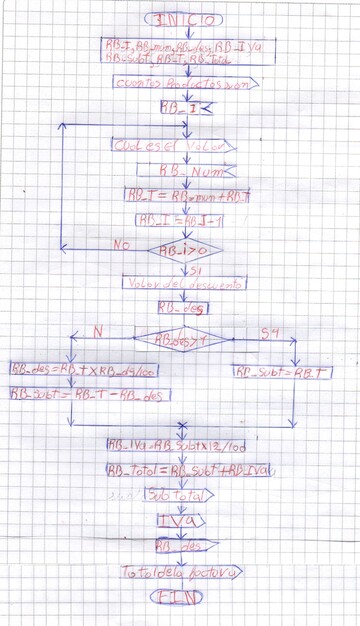 INICIO
RB_I, RB_num, RB_des, RB_IVa
RB_subt, RB_T, RB_Total
cuantos Productos son
RB_I
Cual es el Valor
RB_Num
RB_T = RB_num + RB_T
RB_I = RB_I-1
NO
RB_i>0
Si
Valor del descuento
RB_des
N
RB_des>1
Sq
RB_des=RB_TxRB_ds/100
RB_subt=RB_T
RB_subt = RB_T - RB_des
RB_IVa=RB_Subtx12/100
RB_Total=RB_subt+RB_IVa
Subtotal
IVa
RB_des
Total de la factura
FIN